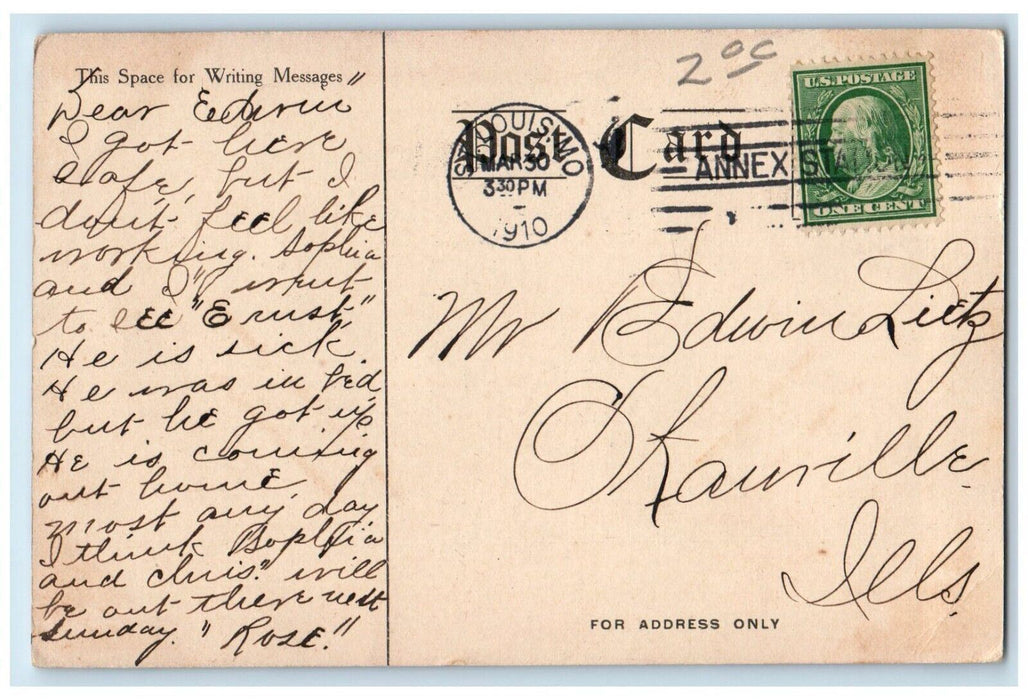 This Space for Writing Messages "
Dear Edwin
I got here
safe, but I
don't feel like
working. Sophia
and I" went
to see "Ernst,"
He is sick.
He was in bed,
but he got up
He is coming
out home,
most any day
I think Sophia
and Chris." will
be out there next
Sunday. " Rose."
2oc
Post Card
ST. LOUIS, MO
MAR 30
3 30 PM
1910
ANNEX STA
U.S. POSTAGE
ONE CENT
Mr Edwin Lietz
Okawville
Ills.
FOR ADDRESS ONLY